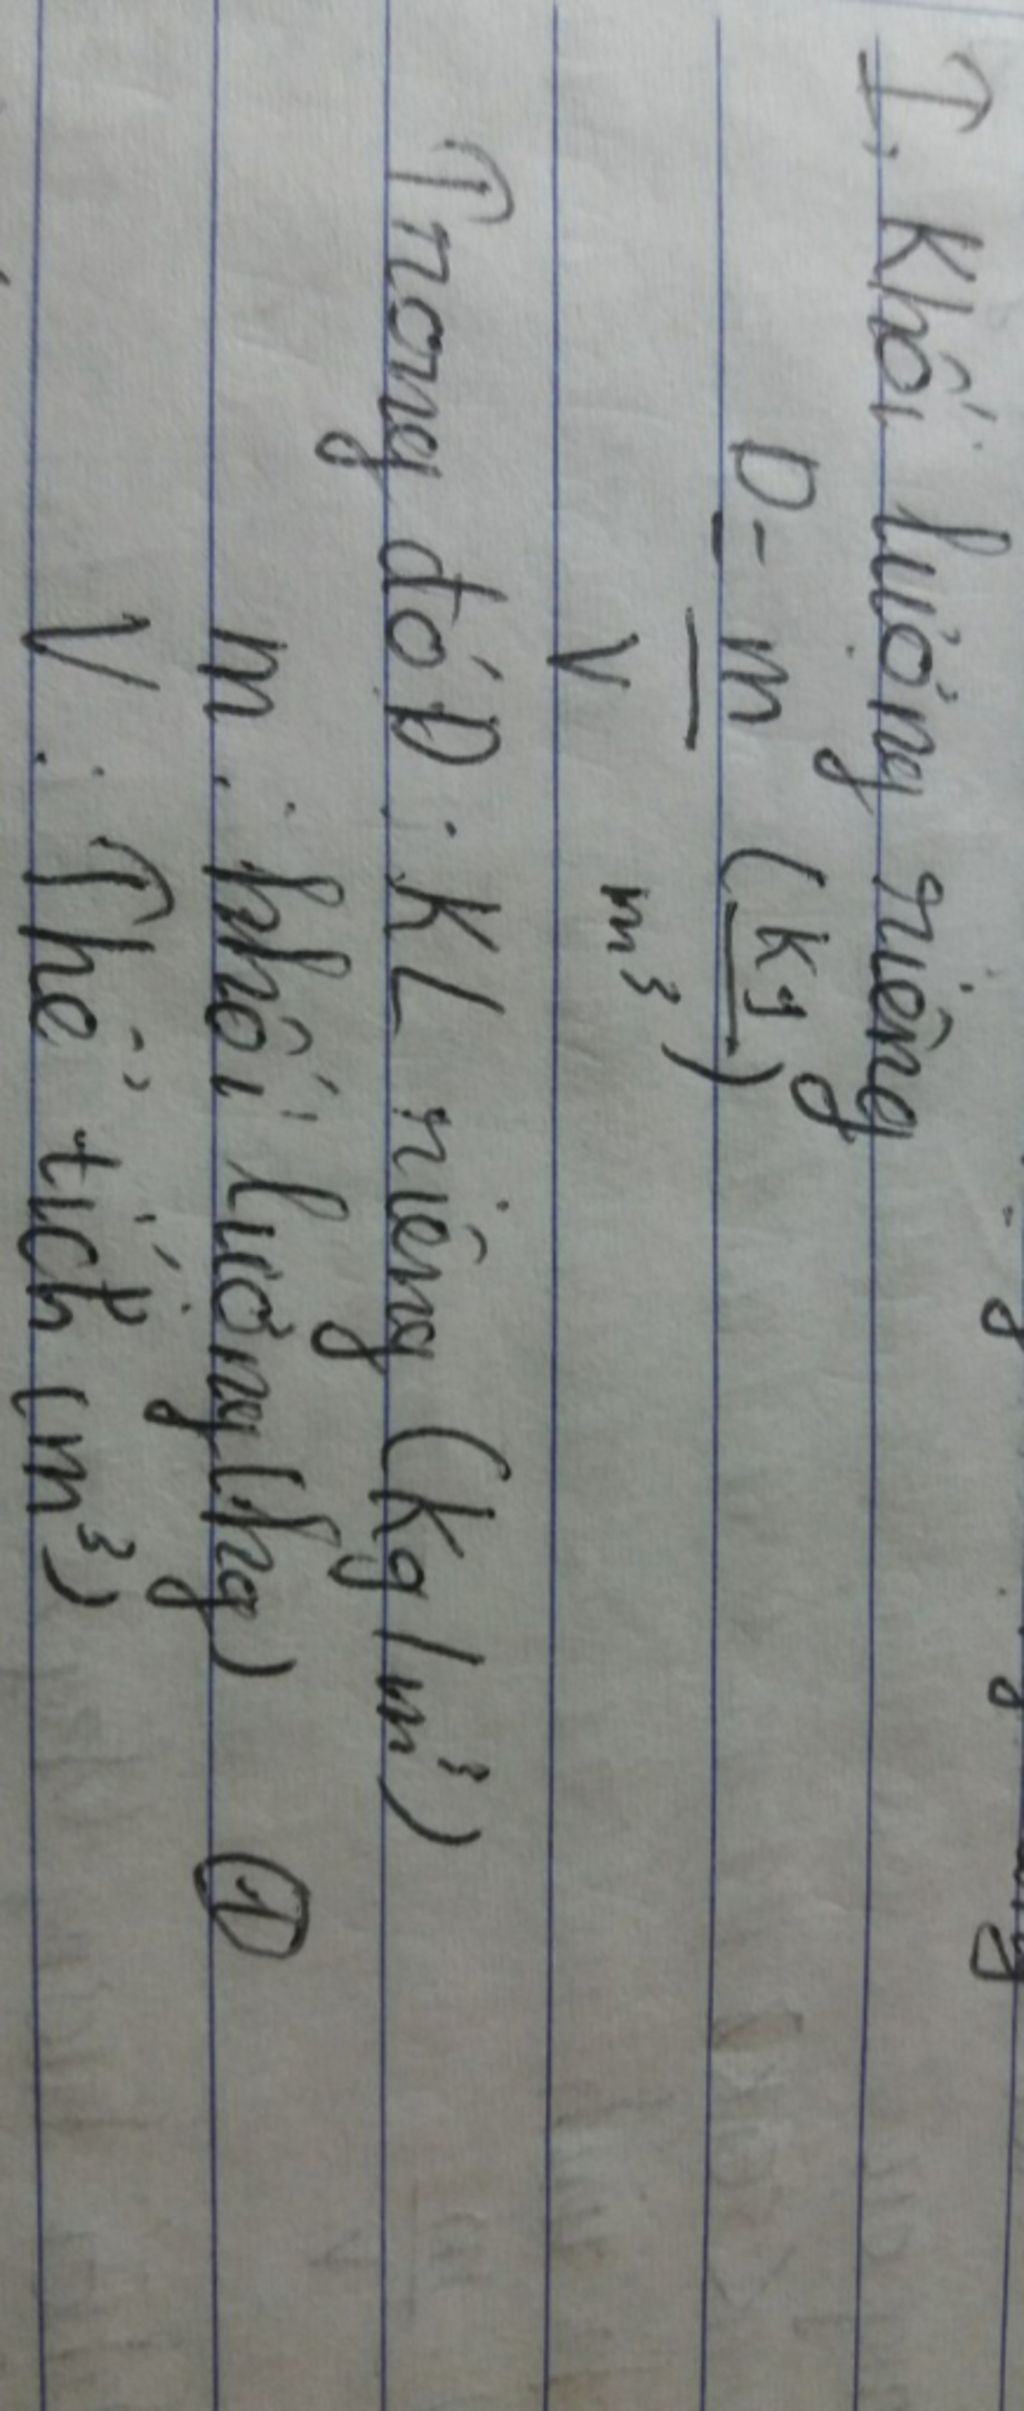 I, Khối lượng riêng
D = m (kg)
V m³
Trong đó D: KL riêng (kg/m³)
m: khối lượng (kg) ①
V: Thể tích (m³)